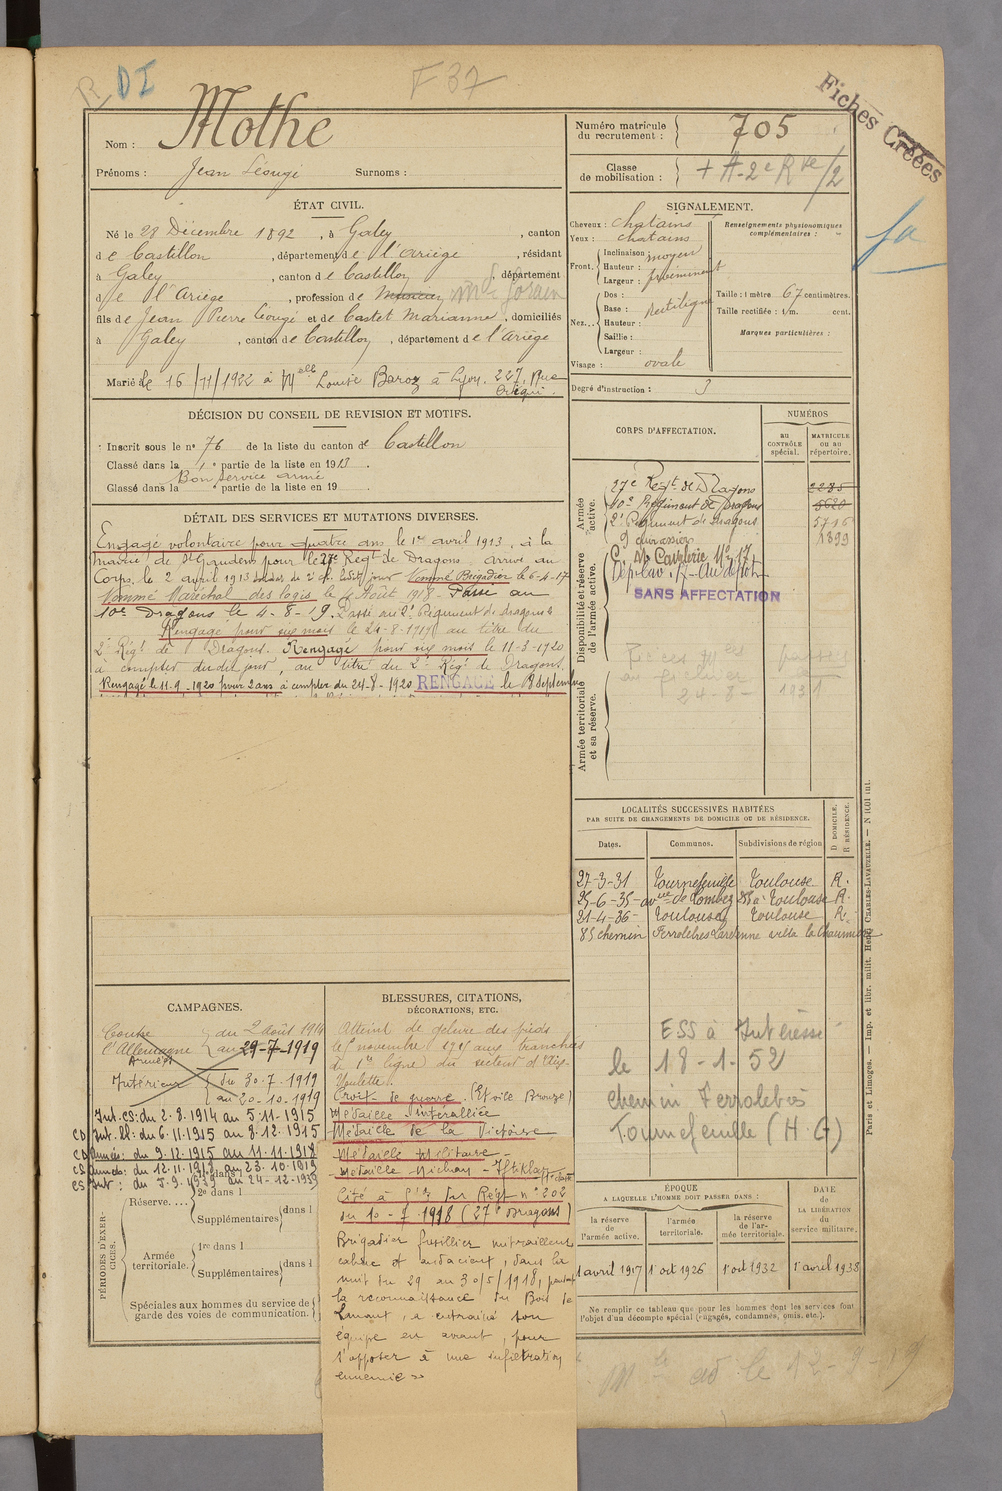 R DI
F 37
Fiches Créées
Nom : Mothe
Prénoms : Jean Léougé Surnoms :
Numéro matricule du recrutement : 705
Classe de mobilisation : + A-2e Rve/2
ÉTAT CIVIL.
Né le 28 Décembre 1892, à Galey, canton
de Castillon, département de l'Ariège, résidant
à Galey, canton de Castillon, département
de l'Ariège, profession de
fils de Jean Pierre Léougé et de Castet Marianne, domiciliés
à Galey, canton de Castillon, département de l'Ariège
Marié le 16/11/1922 à Melle Louise Baroz à Lyon. 227, Rue
SIGNALEMENT.
Cheveux : chatains
Yeux : chatains
Front. Inclinaison moyen
Hauteur :
Largeur : proéminent
Nez... Dos :
Base : Rectiligne
Hauteur :
Saillie :
Largeur :
Visage : ovale
Renseignements physionomiques
complémentaires :
Taille : 1 mètre 67 centimètres.
Taille rectifiée : 1/m. cent.
Marques particulières :
Degré d'instruction : 3
DÉCISION DU CONSEIL DE REVISION ET MOTIFS.
Inscrit sous le n° 76 de la liste du canton de Castillon
Classé dans la 1e partie de la liste en 1913.
Bon service armé
Classé dans la e partie de la liste en 19 .
DÉTAIL DES SERVICES ET MUTATIONS DIVERSES.
Engagé volontaire pour quatre ans le 1er avril 1913, à la
mairie de St Gaudens pour le 27e Régt de Dragons arrivé au
Corps, le 2 avril 1913 soldat de 2e cl. ledit jour Nommé Brigadier le 6-4-17
Nommé Maréchal des logis le Août 1918. Passé au
10e Dragons le 4-8-19. Passé au 2e Régiment de dragons
Rengagé pour six mois le 24-8-1919 au titre du
2e Régt de Dragons. Rengagé pour six mois le 11-3-1920
à compter dudit jour, au titre du 2e Régt de Dragons.
Rengagé le 11-9-1920 pour 2 ans à compter du 24-8-1920 RENGAGÉ le 8 septembre
CORPS D'AFFECTATION.
NUMÉROS
au CONTRÔLE spécial.
MATRICULE ou au répertoire.
Armée active.
27e Régt de Dragons 2285
10e Régiment de Dragons 5620
2e Régiment de dragons 5716
9 cuirassiers 1899
Disponibilité et réserve de l'armée active.
C. M. Cavalerie N° 17
SANS AFFECTATION
Pièces mles passées
au fichier
24-8-1931
Armée territoriale et sa réserve.
LOCALITÉS SUCCESSIVES HABITÉES
PAR SUITE DE CHANGEMENTS DE DOMICILE OU DE RÉSIDENCE.
D DOMICILE.
R RÉSIDENCE.
Dates. Communes. Subdivisions de région
27-3-31 Tournefeuille Toulouse R.
25-6-35 avue de Lombez à Toulouse R.
21-4-36 Toulouse Toulouse R.
85 chemin Ferroletres Lardenne villa la Chaumière
ESS à Intéressé
le 18-1-52
chemin Ferroletrès
Tournefeuille (H G)
CAMPAGNES.
Contre l'Allemagne du 2 août 1914
au 29-7-1919
Armées
Intérieur du 30.7.1919
au 20-10.1919
Int. CS : du 2.8.1914 au 5.11.1915
CD Int. : du 6.11.1915 au 8.12.1915
CD Armées : du 9.12.1915 au 11.11.1918
CS Armées : du 12.11.1918 au 23.10.1919
CS Int : du 5.9.1939 au 24-12-1939
PÉRIODES D'EXERCICES.
Réserve.... 2e dans l
Supplémentaires dans l
Armée territoriale. 1re dans l
Supplémentaires dans l
Spéciales aux hommes du service de
garde des voies de communication.
BLESSURES, CITATIONS,
DÉCORATIONS, ETC.
Atteint de gelure des pieds
le novembre 1915 aux tranchées
de 1re ligne du secteur d'Aix-
Noulette.
Croix de guerre. (Étoile Bronze)
Médaille Interalliée
Médaille de la Victoire
Médaille Militaire -
Médaille Nichan-Iftikhar
Cité à l'O. du Régt n° 202
du 10-7-1918 (27e Dragons)
Brigadier fusillier mitrailleur
calme et audacieux, dans la
nuit du 29 au 30/5/1918, pendant
la reconnaissance du Bois de
, a entraîné son
équipe en avant, pour
s'opposer à une infiltration
ennemie »
ÉPOQUE
A LAQUELLE L'HOMME DOIT PASSER DANS :
la réserve de l'armée active.
l'armée territoriale.
la réserve de l'armée territoriale.
DATE de LA LIBÉRATION du service militaire.
1 avril 1917 1er oct 1926 1er oct 1932 1er avril 1938
Ne remplir ce tableau que pour les hommes dont les services font
l'objet d'un décompte spécial (engagés, condamnés, omis, etc.).
Paris et Limoges. — Imp. et libr. milit. Henri CHARLES-LAVAUZELLE.